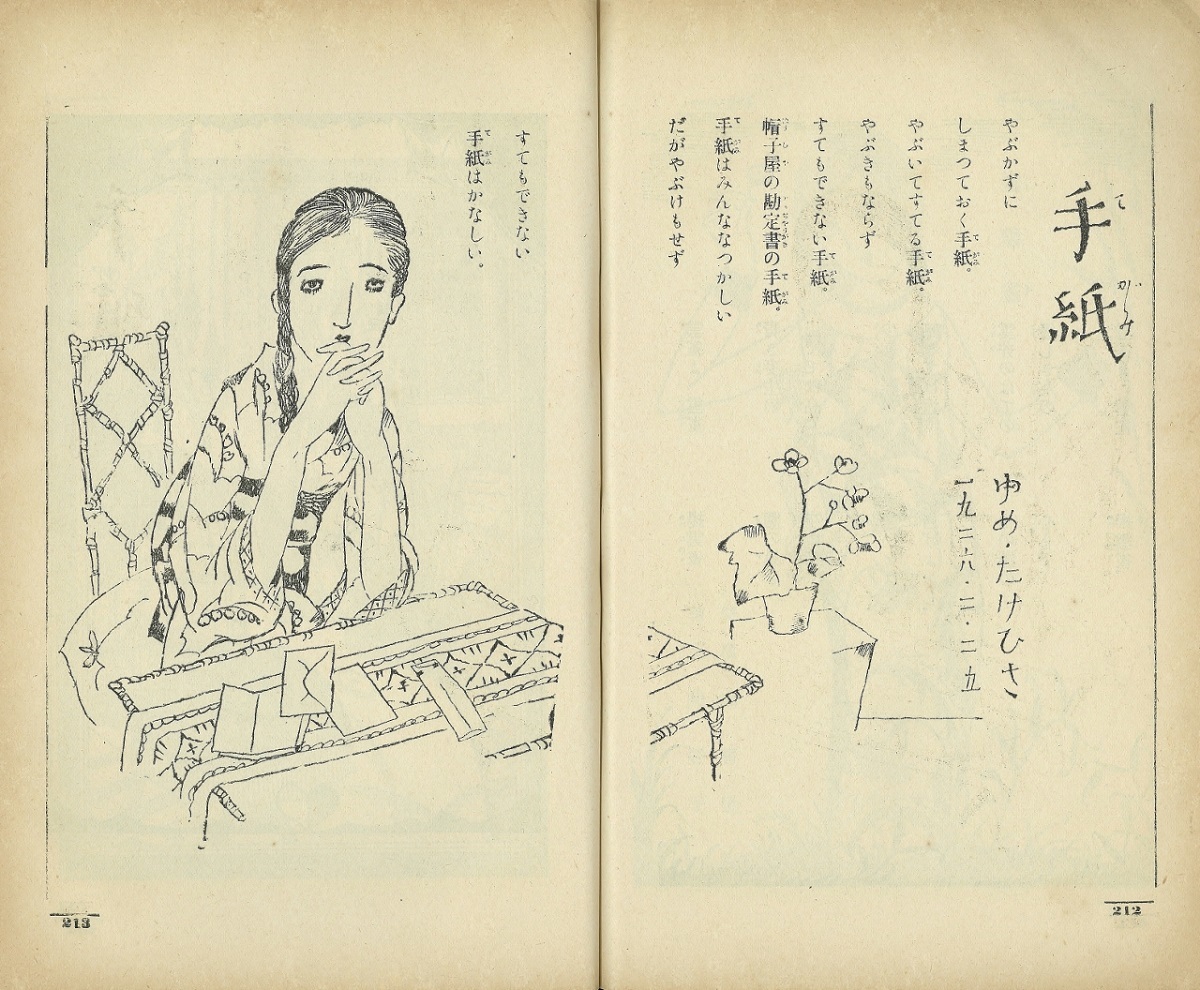 手紙
てがみ
ゆめ・たけひさ
一九二六・二・二五
やぶかずに
しまつておく手紙。
やぶいてすてる手紙。
やぶきもならず
すてもできない手紙。
帽子屋の勘定書の手紙。
手紙はみんななつかしい
だがやぶけもせず
212
すてもできない
手紙はかなしい。
213